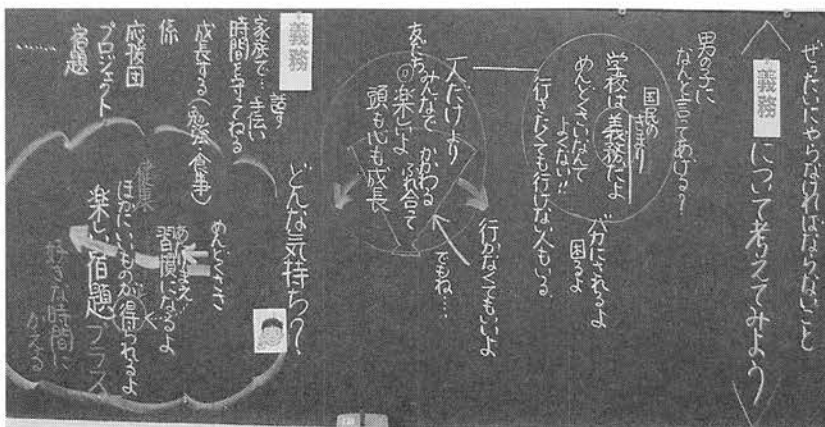 ぜったいにやらなければならないこと
義務について考えてみよう
男の子に
なんと言ってあげる？
国民のきまり
学校は義務だよ
めんどくさいなんて
よくない!!
行きたくても行けない人もいる
バカにされるよ
困るよ
行かなくてもいいよ
でもね……
一人だけより
みんなで かかわる
ふれ合って
友だち
楽しいよ
頭も心も成長
義務
家族で… 話す
手伝い
時間を守ってねる
成長する（勉強 食事）
係
応援団
プロジェクト
宿題
……
どんな気持ち？
めんどくさき
あたりまえ！
習慣になるよ
ほかにいいものが得られるよ
健康
楽しい宿題 プラス
好きな時間に
かえる